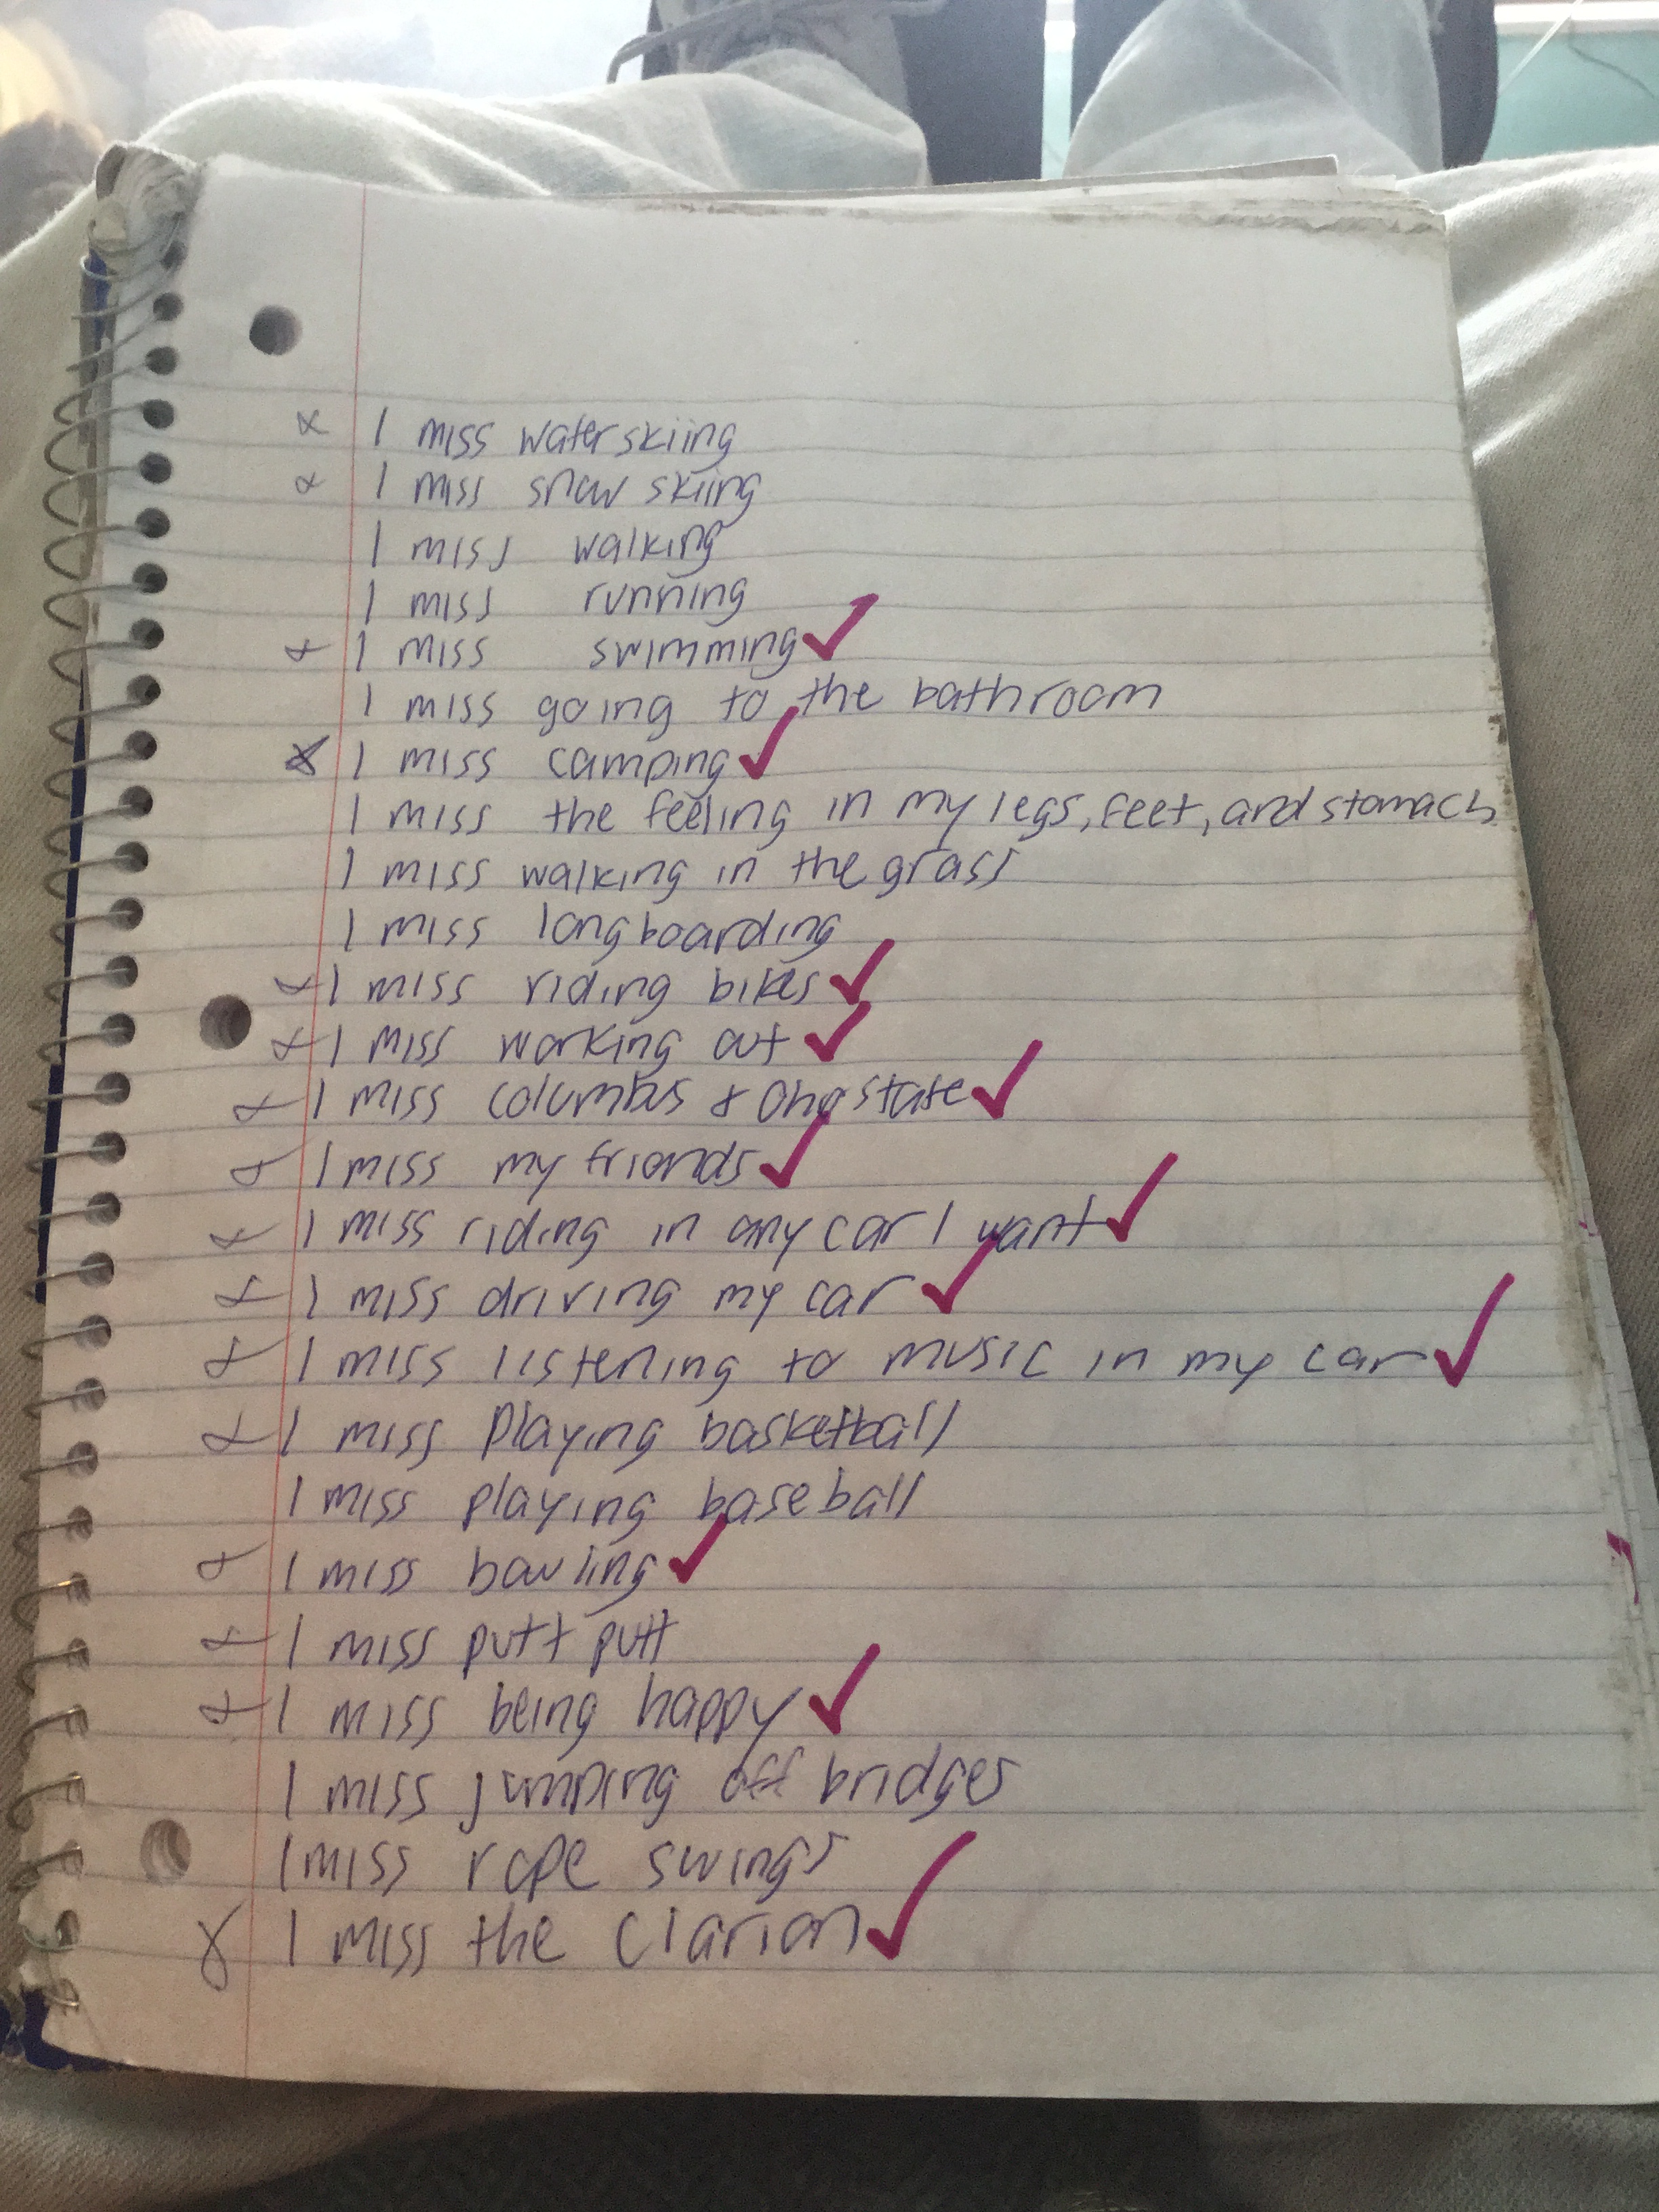 I miss waterskiing
I miss snow skiing
I miss walking
I miss running
I miss swimming
I miss going to the bathroom
I miss camping
I miss the feeling in my legs, feet, and stomach
I miss walking in the grass
I miss longboarding
I miss riding bikes
I miss working out
I miss columbus & Ohio state
I miss my friends
I miss riding in any car I want
I miss driving my car
I miss listening to music in my car
I miss playing basketball
I miss playing baseball
I miss bowling
I miss putt putt
I miss being happy
I miss jumping off bridges
I miss rope swings
I miss the Clarion